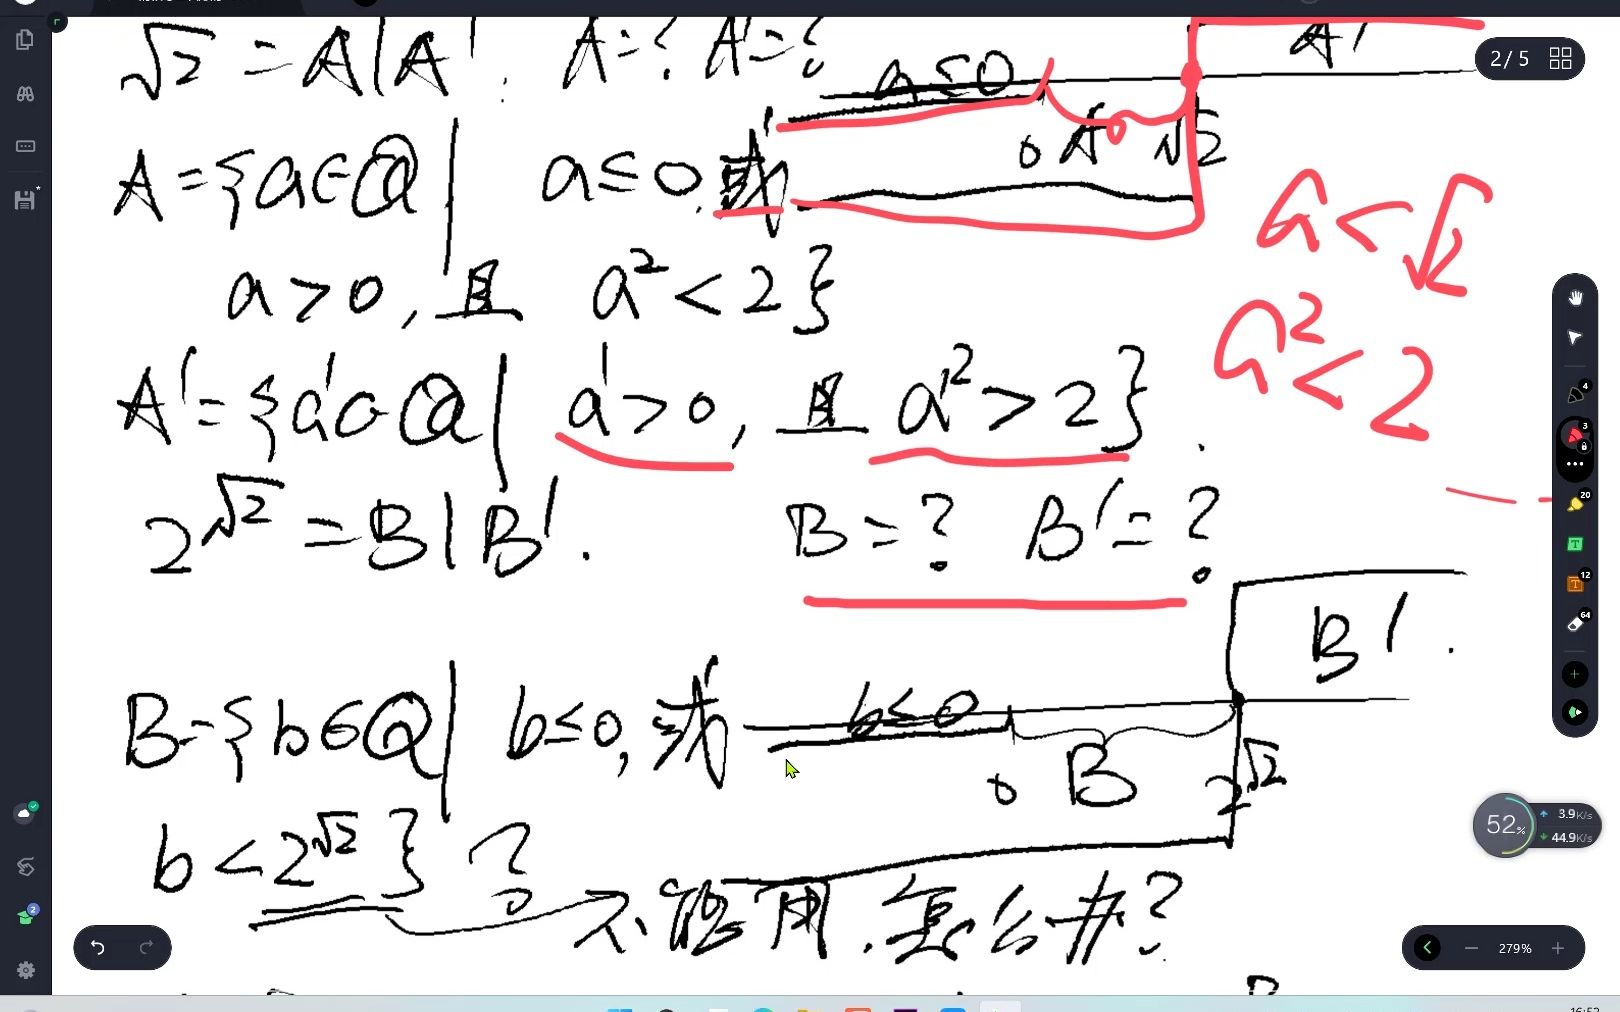 √2 = A|A'. A=? A'=?
a≤0
A'
0 A √2
A={a∈Q| a≤0,或
a>0,且 a²<2}
a<√2
a²<2
A'={a'∈Q| a'>0,且 a'²>2}.
2^√2 = B|B'. B=? B'=?
B'.
B={b∈Q| b≤0,或
b≤0
0 B 2^√2
b<2^√2}?
不能用.怎么办?
2/5
4
3
20
12
64
52%
3.9K/s
44.9K/s
2
279%